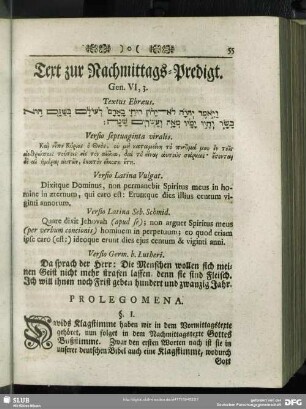 ) o (
55
Text zur Nachmittags-Predigt.
Gen. VI, 3.
Textus Ebræus.
ויאמר יהוה לא ידון רוחי באדם לעולם בשגם הוא
בשר והיו ימיו מאה ועשרים שנה׃
Versio septuaginta viralis.
Καὶ εἶπε Κύριος ὁ Θεός. οὐ μὴ καταμείνῃ τὸ πνεῦμά μου ἐν τοῖς
ἀνθρώποις τούτοις εἰς τὸν αἰῶνα, διὰ τὸ εἶναι αὐτοὺς σάρκας· ἔσονται
δὲ αἱ ἡμέραι αὐτῶν, ἑκατὸν εἴκοσι ἔτη.
Versio Latina Vulgat.
Dixitque Dominus, non permanebit Spiritus meus in ho-
mine in æternum, qui caro est: Eruntque dies illius centum
viginti annorum.
Versio Latina Seb. Schmid.
Quare dixit Jehovah (apud se); non arguet Spiritus meus
(per verbum concionis) hominem in perpetuum; eo quod etiam
ipse caro (est:) ideoque erunt dies ejus centum & viginti anni.
Versio Germ. b. Lutheri.
Da sprach der Herr: Die Menschen wollen sich mei-
nen Geist nicht mehr strafen lassen, denn sie sind Fleisch.
Ich will ihnen noch Frist geben hundert und zwanzig Jahr.
PROLEGOMENA.
§. I.
Davids Klagstimme haben wir in dem Vormittagstexte
gehöret, nun folget in dem Nachmittagstexte Gottes
Bußstimme. Zwar den ersten Worten nach ist sie in
unserer deutschen Bibel auch eine Klagstimme, wodurch
Gott
SLUB
Wir führen Wissen.
gefördert von der
Deutschen Forschungsgemeinschaft
DFG